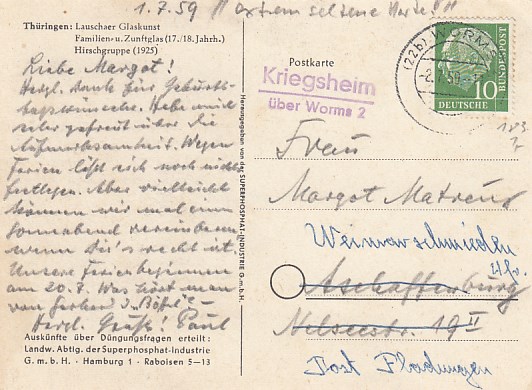 1.7.59 || extrem seltene Marke !!
Thüringen: Lauschaer Glaskunst
Familien- u. Zunftglas (17./18. Jahrh.)
Hirschgruppe (1925)
Liebe Margot!
Herzl. Dank für Geburts-
tagswünsche. Habe mich
sehr gefreut über die
Aufmerksamkeit. Wegen
Ferien läßt sich noch nichts
festlegen. Aber vielleicht
können wir mal einen
Sonnabend vereinbaren
wenn Dir's recht ist.
Unsere Ferien beginnen
am 20.7. Was hört man
von Gerhard
Herzl. Grüße! Paul
Auskünfte über Düngungsfragen erteilt:
Landw. Abtlg. der Superphosphat-Industrie
G.m.b.H. · Hamburg 1 · Raboisen 5—13
Herausgegeben von der SUPERPHOSPHAT-INDUSTRIE G.m.b.H.
Postkarte
Kriegsheim
über Worms 2
(22b) WORMS
DEUTSCHE
BUNDESPOST
10
Frau
Margot
Aschaffenburg
19 II
Post